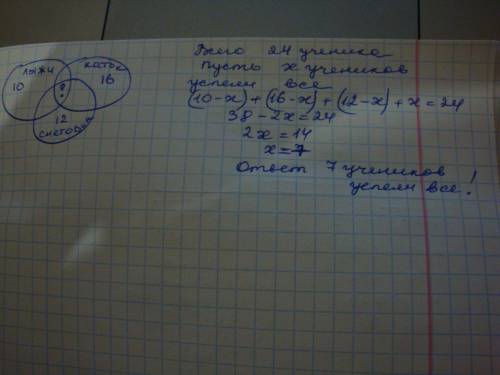 лыжи
каток
10
16
?
12
снеговик
Всего 24 ученика
Пусть x учеников
успели все
(10-x)+(16-x)+(12-x)+x=24
38-2x=24
2x=14
x=7
Ответ 7 учеников
успели все!